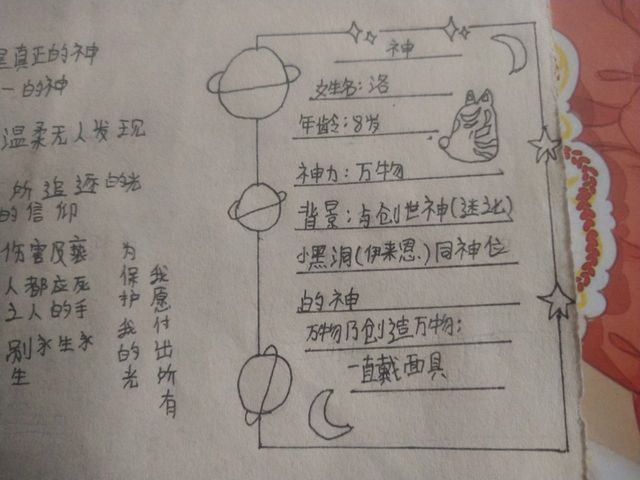 是真正的神
一的神
温柔无人发现
所追逐的光
的信仰
伤害及亵
人都应死
主人的手
别家生家
生
为保护我的光
我愿付出所有
神
姓名：洛
年龄：8岁
神力：万物
背景：与创世神(迷北)
小黑洞(伊来恩)同神位
的神
万物乃创造万物；
一直戴面具